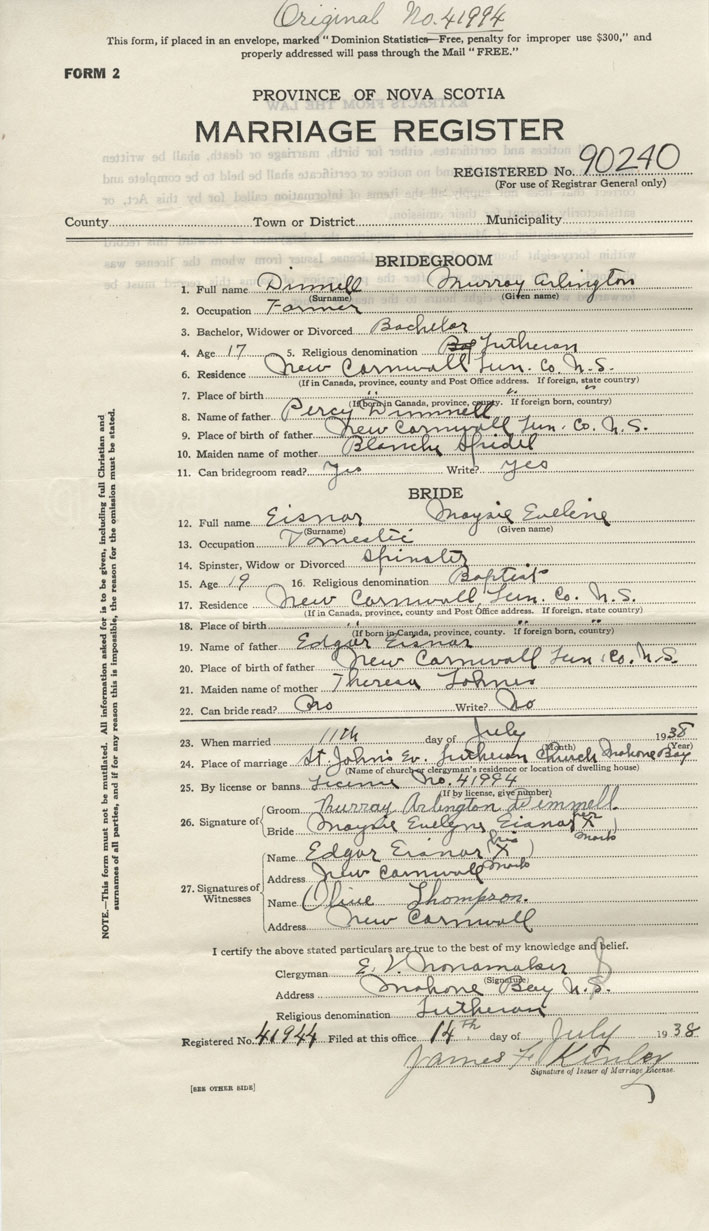 Original No. 41994
This form, if placed in an envelope, marked "Dominion Statistics—Free, penalty for improper use $300," and
properly addressed will pass through the Mail "FREE."
FORM 2
PROVINCE OF NOVA SCOTIA
MARRIAGE REGISTER
REGISTERED No. 90240
(For use of Registrar General only)
County Town or District Municipality
BRIDEGROOM
1. Full name Dimmell Murray Arlington
(Surname) (Given name)
2. Occupation Farmer
3. Bachelor, Widower or Divorced Bachelor
4. Age 17 5. Religious denomination Lutheran
6. Residence New Cornwall Lun. Co. N.S.
(If in Canada, province, county and Post Office address. If foreign, state country)
7. Place of birth " " "
(If born in Canada, province, county. If foreign born, country)
8. Name of father Percy Dimmell
9. Place of birth of father New Cornwall Lun. Co. N.S.
10. Maiden name of mother Blanche Spidel
11. Can bridegroom read? Yes Write? yes
BRIDE
12. Full name Eisnor Maysie Eveline
(Surname) (Given name)
13. Occupation Domestic
14. Spinster, Widow or Divorced Spinster
15. Age 19 16. Religious denomination Baptist
17. Residence New Cornwall, Lun. Co. N.S.
(If in Canada, province, county and Post Office address. If foreign. state country)
18. Place of birth " " "
(If born in Canada, province, county. If foreign born, country)
19. Name of father Edgar Eisnor
20. Place of birth of father New Cornwall Lun. Co. N.S.
21. Maiden name of mother Theresa Lohnes
22. Can bride read? No Write? No
23. When married 11th day of July 1938
(Month) (Year)
24. Place of marriage St. John's Ev. Lutheran Church Mahone Bay
(Name of church or clergyman's residence or location of dwelling house)
25. By license or banns License No. 41994
(If by license, give number)
26. Signature of Groom Murray Arlington Dimmell
Bride Maysie Evelyne Eisnor X her mark
27. Signatures of Witnesses
Name Edgar Eisnor X his mark
Address New Cornwall
Name Olive Thompson.
Address New Cornwall
I certify the above stated particulars are true to the best of my knowledge and belief.
Clergyman E. V. Nonamaker
(Signature)
Address Mahone Bay N.S.
Religious denomination Lutheran
Registered No. 41944 Filed at this office 14th day of July 1938
James F. Kinley
Signature of Issuer of Marriage License.
[SEE OTHER SIDE]
NOTE.—This form must not be mutilated. All information asked for is to be given, including full Christian and
surnames of all parties, and if for any reason this is impossible, the reason for the omission must be stated.